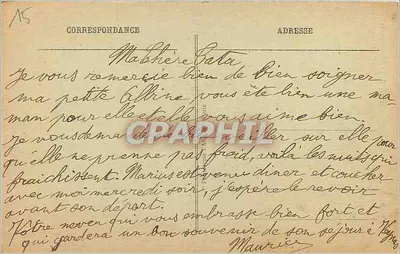 15
CORRESPONDANCE ADRESSE
Ma Chère Tata
Je vous remercie bien de bien soigner
ma petite Albine vous êtes bien une ma-
man pour elle et elle vous aime bien.
Je vous demande de veiller sur elle pour
qu'elle ne prenne pas froid, voilà les nuits qui
fraichissent. Marius est venu diner et coucher
avec moi mercredi soir, j'espère le revoir
avant son départ.
Votre neveu qui vous embrasse bien fort et
qui gardera un bon souvenir de son séjour à
Maurice
CPAPHIL